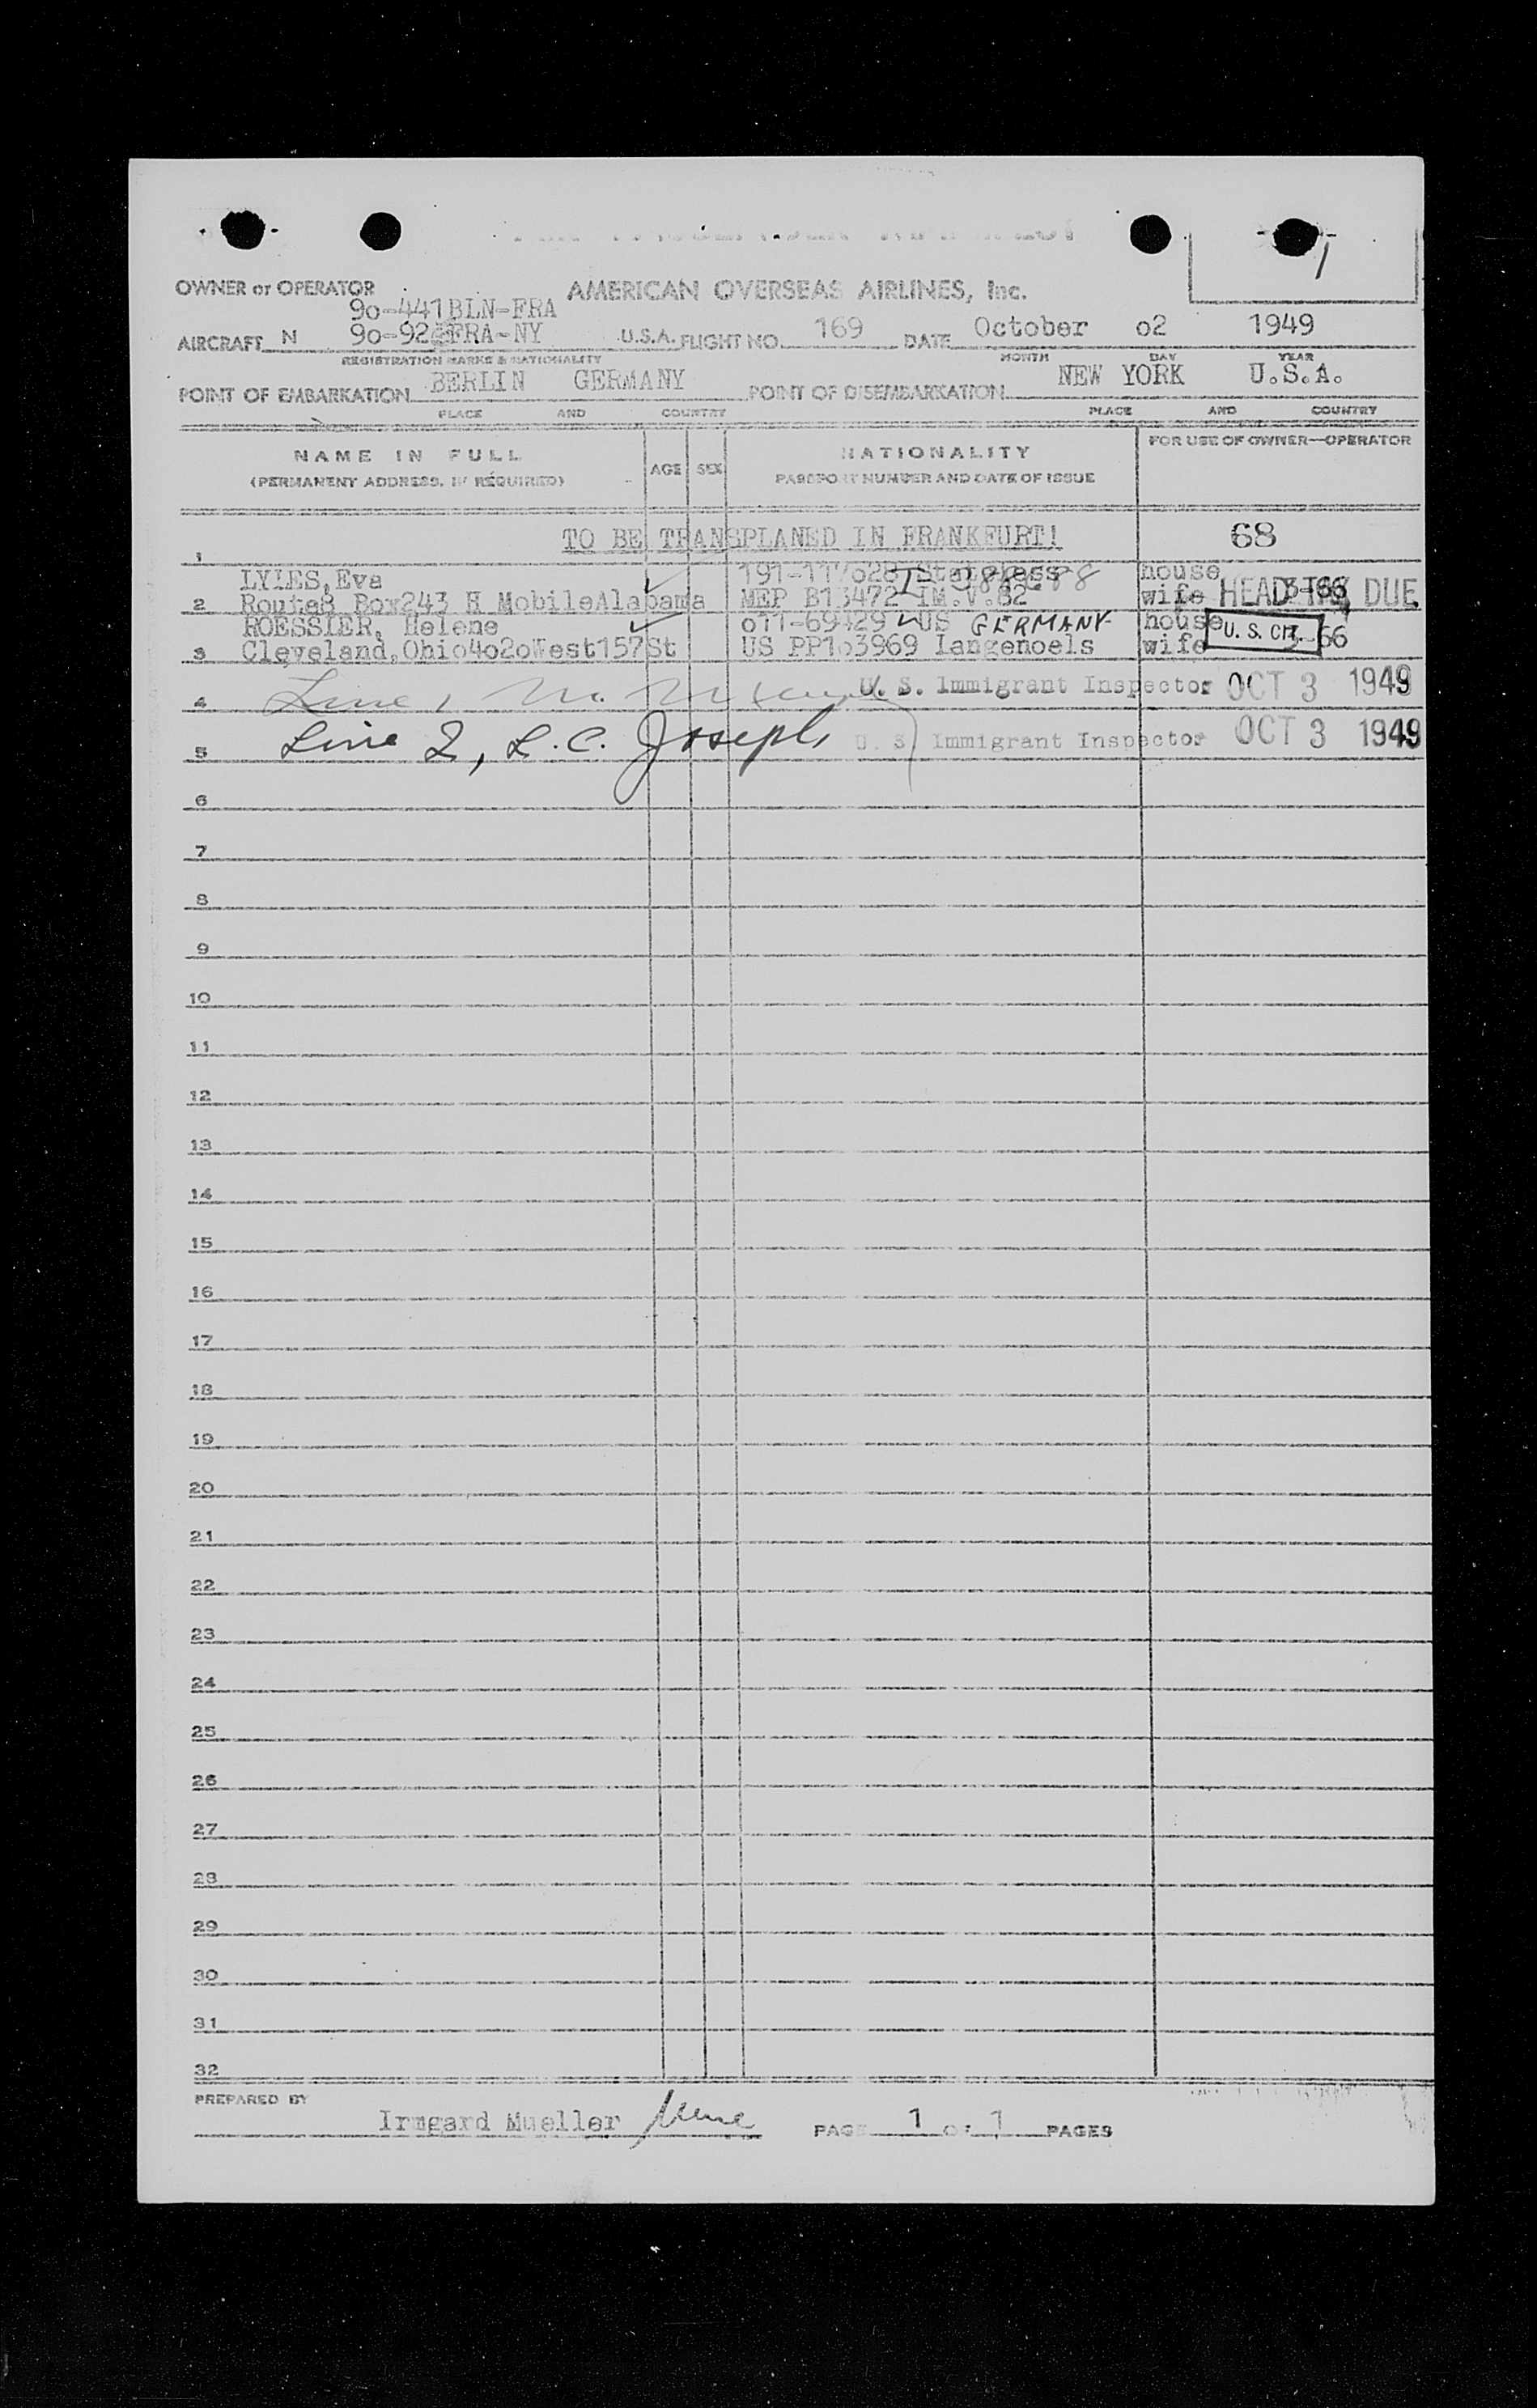 1
OWNER or OPERATOR
AMERICAN OVERSEAS AIRLINES, Inc.
9o-441BLN-FRA
AIRCRAFT N 9o-92 FRA-NY U.S.A. FLIGHT NO. 169 DATE October o2 1949
REGISTRATION MARKS & NATIONALITY MONTH DAY YEAR
POINT OF EMBARKATION BERLIN GERMANY POINT OF DISEMBARKATION NEW YORK U.S.A.
PLACE AND COUNTRY PLACE AND COUNTRY
NAME IN FULL
(PERMANENT ADDRESS, IF REQUIRED)
AGE SEX
NATIONALITY
PASSPORT NUMBER AND DATE OF ISSUE
FOR USE OF OWNER—OPERATOR
1 TO BE TRANSPLANED IN FRANKFURT! 68
LYLES,Eva Stateless house
2 Route8 Box243 H MobileAlabama MEP B13472 IM.V.82 wife HEAD TAX DUE
ROESSLER, Helene o11-69429 US GERMANY house
3 Cleveland,Ohio4o2oWest157St US PP1o3969 Langenoels wife U. S. CIT. 66
4 Line 1 U. S. Immigrant Inspector OCT 3 1949
5 Line 2, L.C. Joseph U. S. Immigrant Inspector OCT 3 1949
6
7
8
9
10
11
12
13
14
15
16
17
18
19
20
21
22
23
24
25
26
27
28
29
30
31
32
PREPARED BY
Irmgard Mueller PAGE 1 OF 1 PAGES